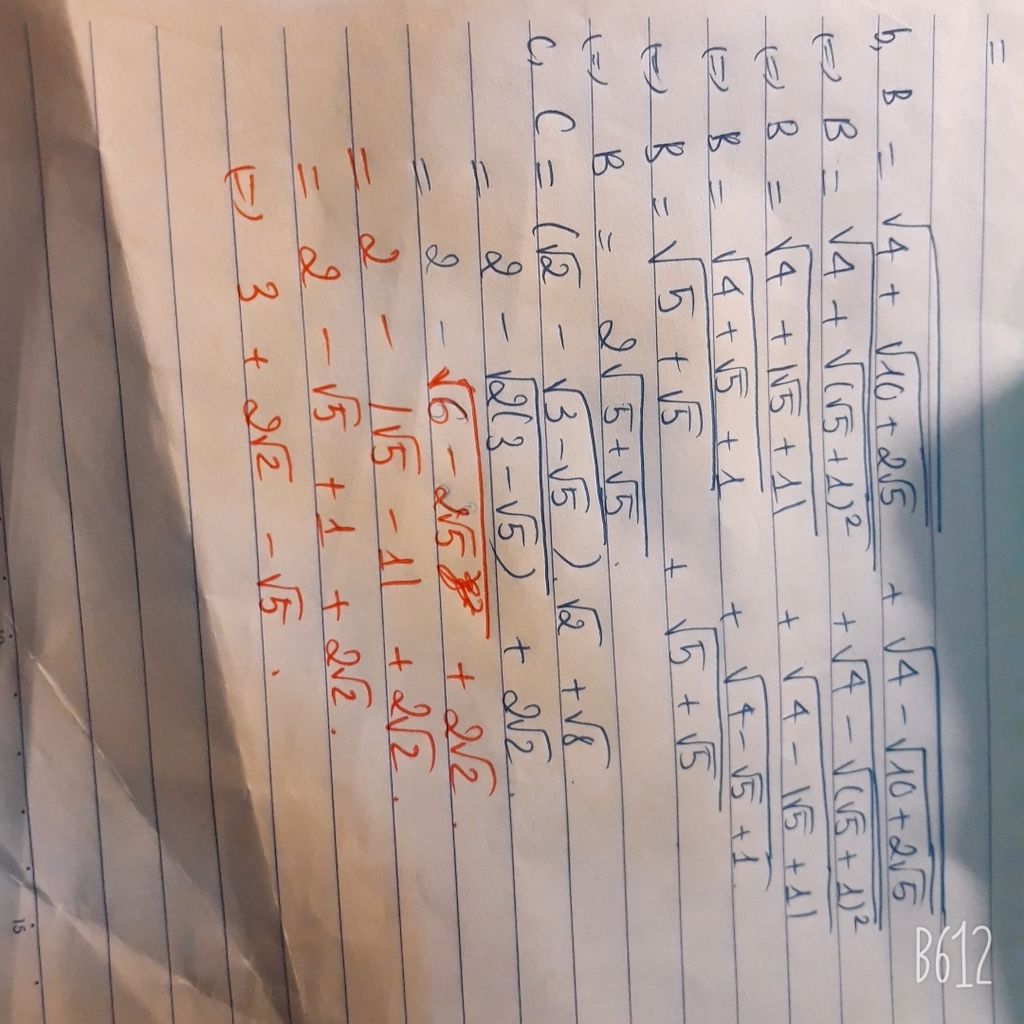 =
b, B = √(4 + √(10 + 2√5)) + √(4 - √(10 + 2√5))
(=) B = √(4 + √((√5 + 1)²)) + √(4 - √((√5 + 1)²))
(=) B = √(4 + |√5 + 1|) + √(4 - |√5 + 1|)
(=) B = √(4 + √5 + 1) + √(4 - √5 + 1)
(=) B = √(5 + √5) + √(5 + √5)
(=) B = 2√(5 + √5).
C, C = (√2 - √(3 - √5)).√2 + √8.
= 2 - √(2(3 - √5)) + 2√2.
= 2 - √(6 - 2√5) + 2√2.
= 2 - |√5 - 1| + 2√2.
= 2 - √5 + 1 + 2√2.
(=) 3 + 2√2 - √5.
15
B612